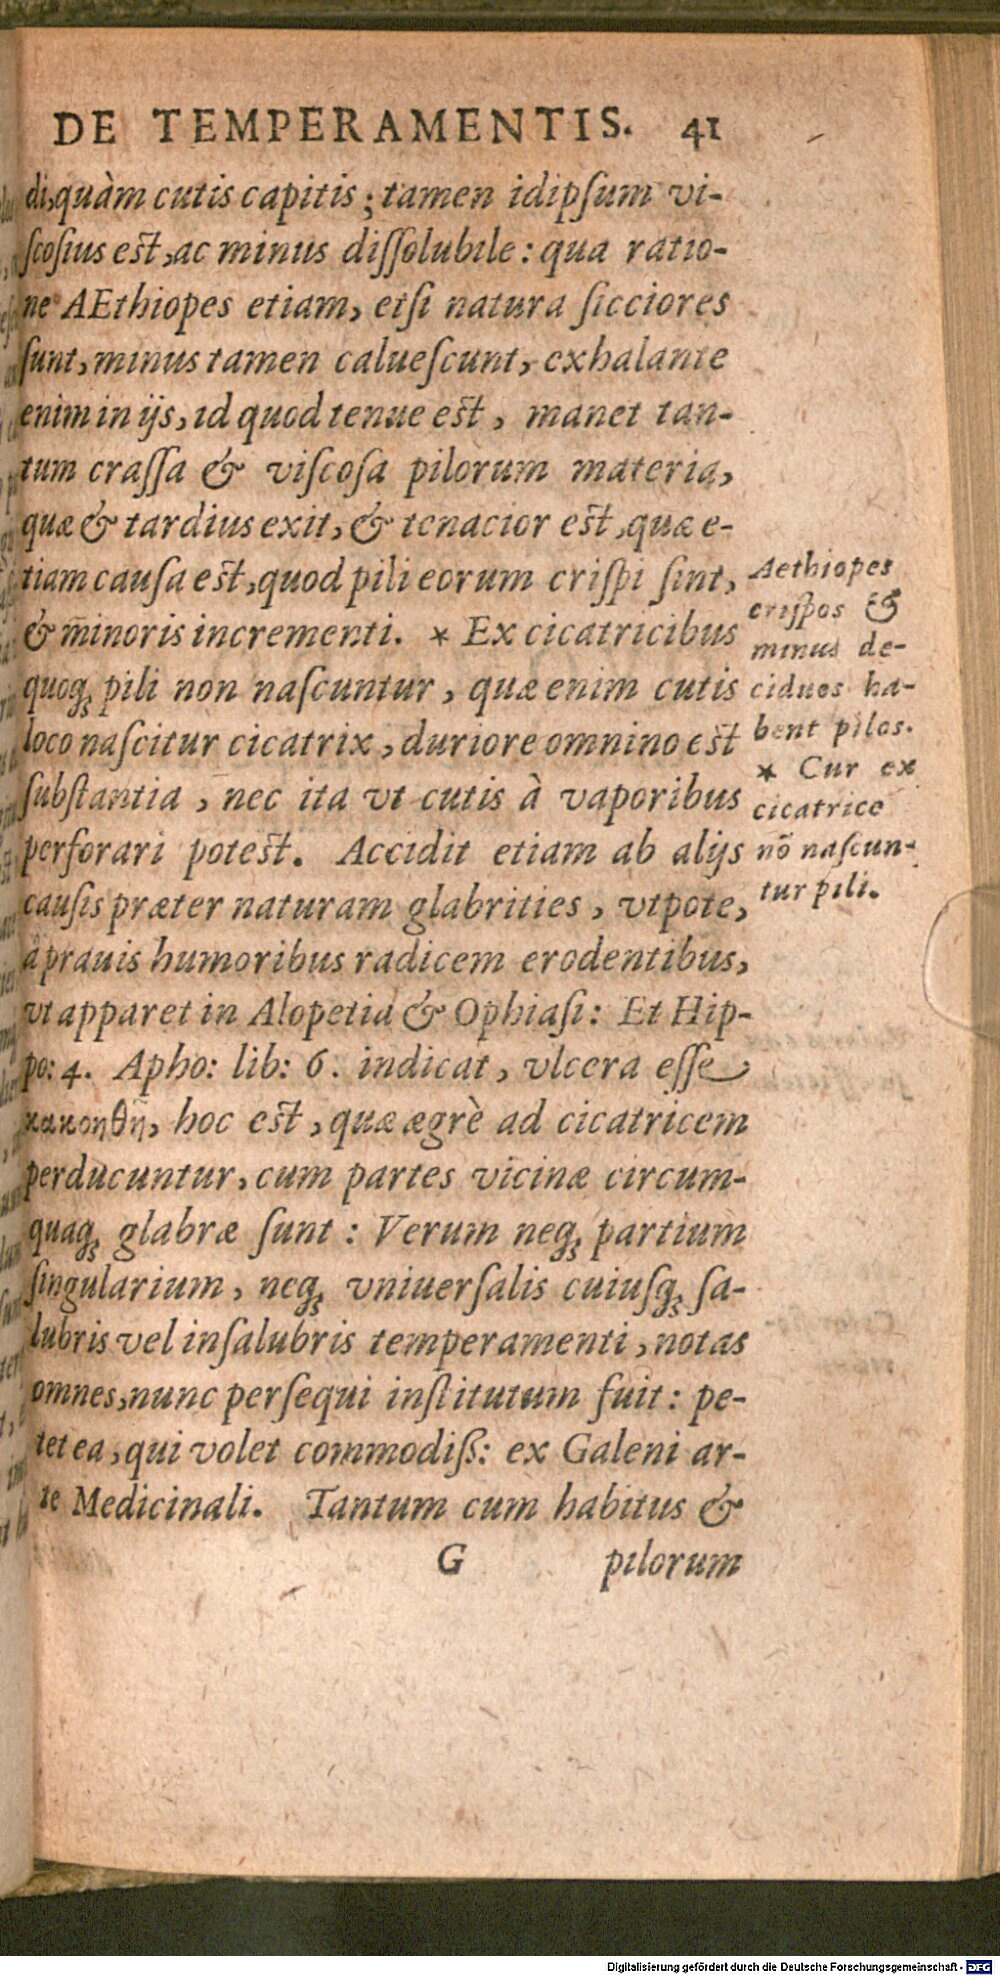 DE TEMPERAMENTIS. 41
di, quàm cutis capitis; tamen idipſum vi-
ſcoſius eſt, ac minus diſſolubile: qua ratio-
ne AEthiopes etiam, etſi natura ſicciores
ſunt, minus tamen calueſcunt, exhalante
enim in ijs, id quod tenue eſt, manet tan-
tum craſſa & viſcoſa pilorum materia,
quæ & tardius exit, & tenacior eſt, quæ e-
tiam cauſa eſt, quod pili eorum criſpi ſint,
& minoris incrementi. * Ex cicatricibus
quoq́ꝫ pili non naſcuntur, quæ enim cutis
loco naſcitur cicatrix, duriore omnino eſt
ſubſtantia, nec ita vt cutis à vaporibus
perforari poteſt. Accidit etiam ab alijs
cauſis præter naturam glabrities, vtpote,
à prauis humoribus radicem erodentibus,
vt apparet in Alopetia & Ophiaſi: Et Hip-
po: 4. Apho: lib: 6. indicat, vlcera eſſe
κακοηθῆ, hoc eſt, quæ ægrè ad cicatricem
perducuntur, cum partes vicinæ circum-
quaqꝫ glabræ ſunt: Verum neqꝫ partium
ſingularium, neqꝫ vniuerſalis cuiuſqꝫ ſa-
lubris vel inſalubris temperamenti, notas
omnes, nunc perſequi inſtitutum fuit: pe-
tet ea, qui volet commodiß: ex Galeni ar-
te Medicinali. Tantum cum habitus &
G pilorum
Aethiopes
criſpos &
minus de-
ciduos ha-
bent pilos.
* Cur ex
cicatrice
nō naſcun-
tur pili.
Digitalisierung gefördert durch die Deutsche Forschungsgemeinschaft - DFG